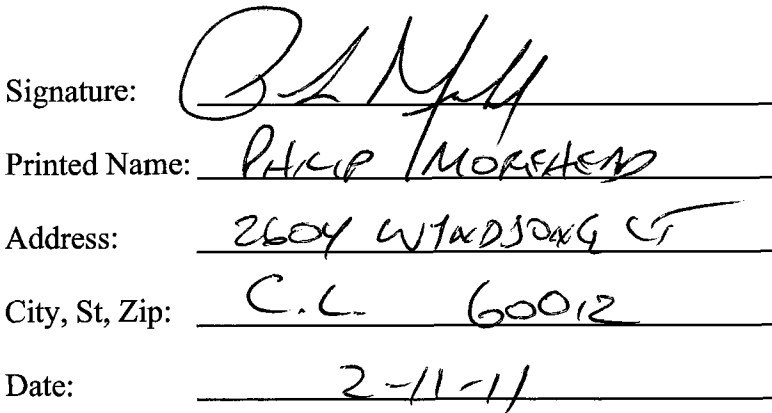 Signature:
Printed Name: PHILIP MOREHEAD
Address: 2604 WINDSONG CT
City, St, Zip: C.L. 60012
Date: 2-11-11